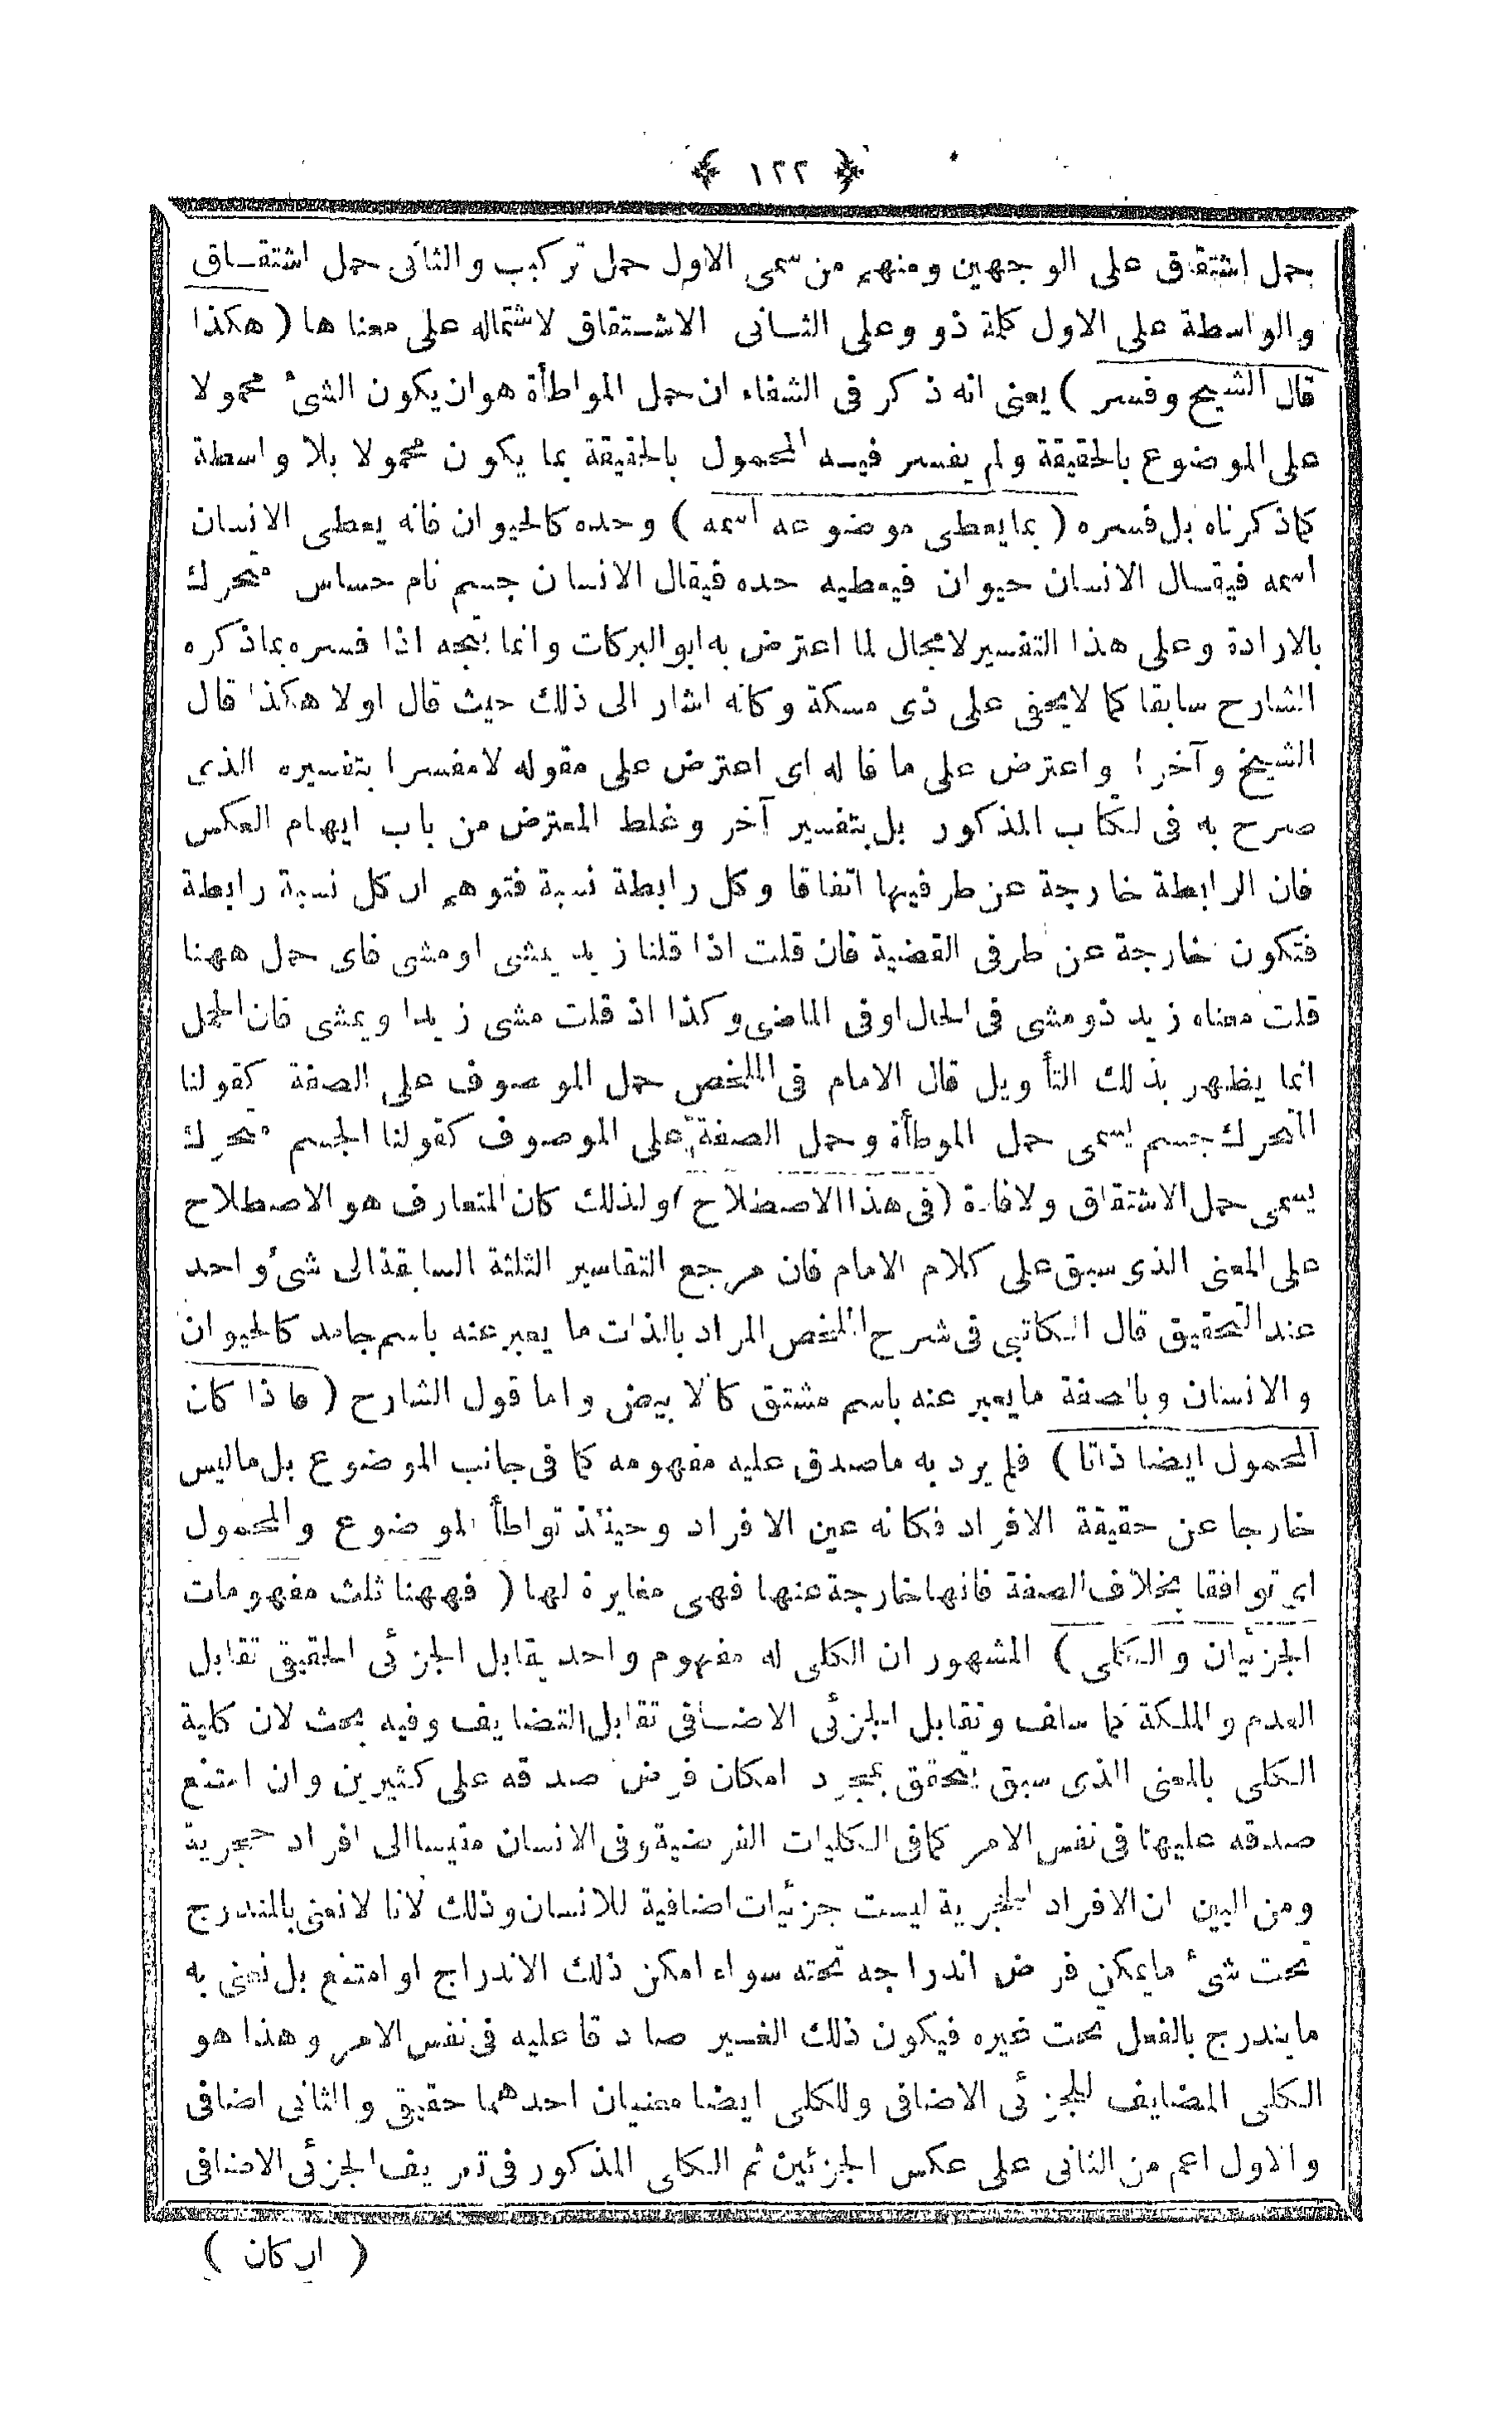 ﴿ ١٢٢ ﴾
بحمل اشتقاق على الوجهين ومنهم من سمى الاول حمل تركيب والثانى حمل اشتقاق
والواسطة على الاول كلة ذو وعلى الثانى الاشتقاق لاشتماله على معناها ( هكذا
قال الشيخ وفسر ) يعنى انه ذكر فى الشفاء ان حمل المواطأة هو ان يكون الشئ محمولا
على الموضوع بالحقيقة ولم يفسر فيه المحمول بالحقيقة بما يكون محمولا بلا واسطة
كما ذكرناه بل فسره ( بما يعطى موضوعه اسمه ) وحده كالحيوان فانه يعطى الانسان
اسمه فيقال الانسان حيوان فيعطيه حده فيقال الانسان جسم نام حساس متحرك
بالارادة وعلى هذا التفسير لا مجال لما اعترض به ابو البركات وانما يتجه اذا فسره بما ذكره
الشارح سابقا كما لا يخفى على ذى مسكة وكانه اشار الى ذلك حيث قال اولا هكذا قال
الشيخ وآخرا واعترض على ما قاله اى اعترض على مقوله لا مفسرا بتفسيره الذى
صرح به فى لكتاب المذكور بل بتفسير آخر وغلط المعترض من باب ايهام العكس
فان الرابطة خارجة عن طرفيها اتفاقا وكل رابطة نسبة فتوهم ان كل نسبة رابطة
فتكون خارجة عن طرفى القضية فان قلت اذا قلنا زيد يمشى او مشى فاى حمل ههنا
قلت معناه زيد ذو مشى فى الحال او فى الماضى وكذا اذ قلت مشى زيدا ويمشى فان الحمل
انما يظهر بذلك التأويل قال الامام فى الملخص حمل الموصوف على الصفة كقولنا
المتحرك جسم يسمى حمل الموطأة وحمل الصفة على الموصوف كقولنا الجسم متحرك
يسمى حمل الاشتقاق ولا فائدة ( فى هذا الاصطلاح ) ولذلك كان المتعارف هو الاصطلاح
على المعنى الذى سبق على كلام الامام فان مرجع التفاسير الثلثة السابقة الى شئ واحد
عند التحقيق قال الكاتبى فى شرح الملخص المراد بالذات ما يعبر عنه باسم جامد كالحيوان
والانسان وبالصفة ما يعبر عنه باسم مشتق كالابيض واما قول الشارح ( فاذا كان
المحمول ايضا ذاتا ) فلم يرد به ما صدق عليه مفهومه كما فى جانب الموضوع بل ما ليس
خارجا عن حقيقة الافراد فكانه عين الافراد وحينئذ تواطأ الموضوع والمحمول
اى توافقا بخلاف الصفة فانها خارجة عنها فهى مغايرة لها ( فههنا ثلث مفهومات
الجزئيان والكلى ) المشهور ان الكلى له مفهوم واحد يقابل الجزئى الحقيقى تقابل
العدم والملكة كما سلف وتقابل الجزئى الاضافى تقابل التضايف وفيه بحث لان كلية
الكلى بالمعنى الذى سبق يتحقق بمجرد امكان فرض صدقه على كثيرين وان امتنع
صدقه عليها فى نفس الامر كما فى الكليات الفرضية وفى الانسان مقيسا الى افراد حجرية
ومن البين ان الافراد الحجرية ليست جزئيات اضافية للانسان وذلك لانا لا نعنى بالمندرج
تحت شئ ما يمكن فرض اندراجه تحته سواء امكن ذلك الاندراج او امتنع بل نعنى به
ما يندرج بالفعل تحت غيره فيكون ذلك الغير صادقا عليه فى نفس الامر وهذا هو
الكلى المضايف للجزئى الاضافى وللكلى ايضا معنيان احدهما حقيقى والثانى اضافى
والاول اعم من الثانى على عكس الجزئين ثم الكلى المذكور فى تعريف الجزئى الاضافى
( ان كان )